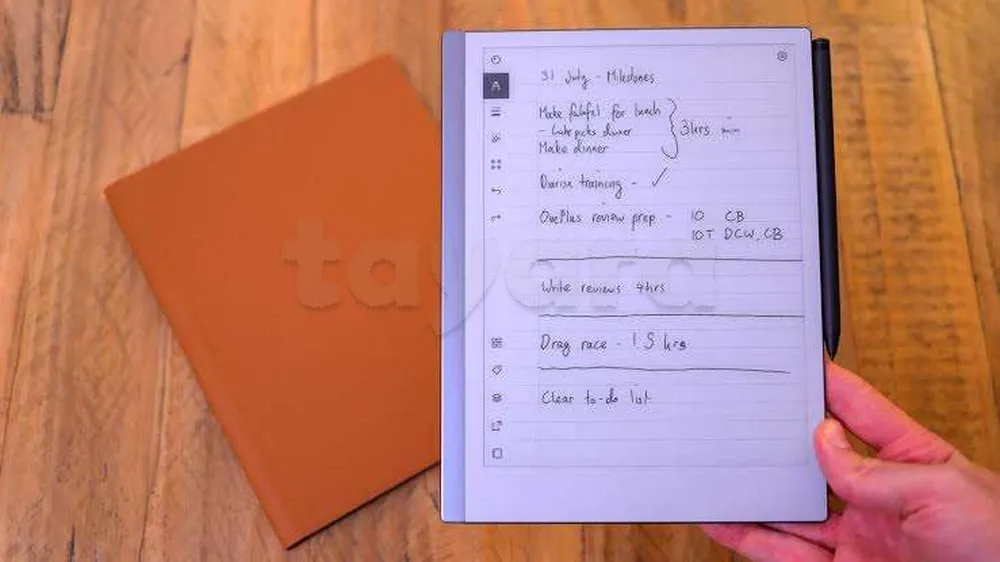 31 July - Milestones
Make falafel for lunch
- Luke picks dinner
Make dinner
3hrs
training - ✓
OnePlus review prep - 10 CB
10T DCW, CB
tayara
Write reviews 4hrs
Drag race - 1.5 hrs
Clear to-do list